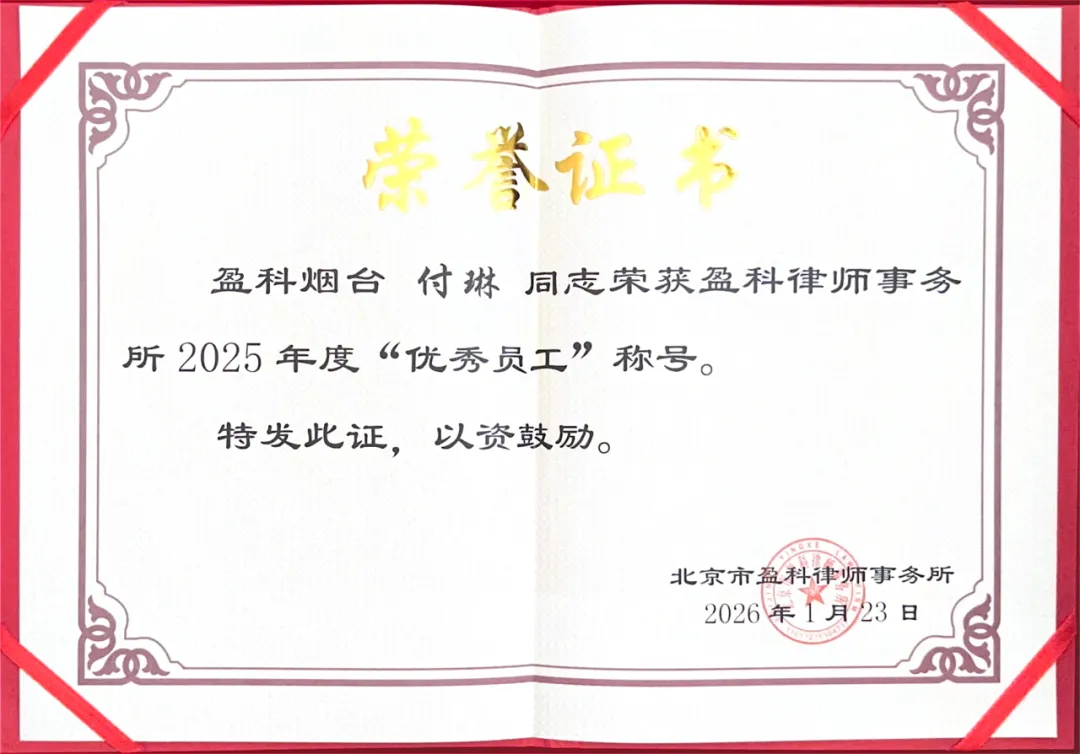 荣誉证书
盈科烟台 付琳 同志荣获盈科律师事务
所 2025 年度“优秀员工”称号。
特发此证，以资鼓励。
北京市盈科律师事务所
2026 年 1 月 23 日